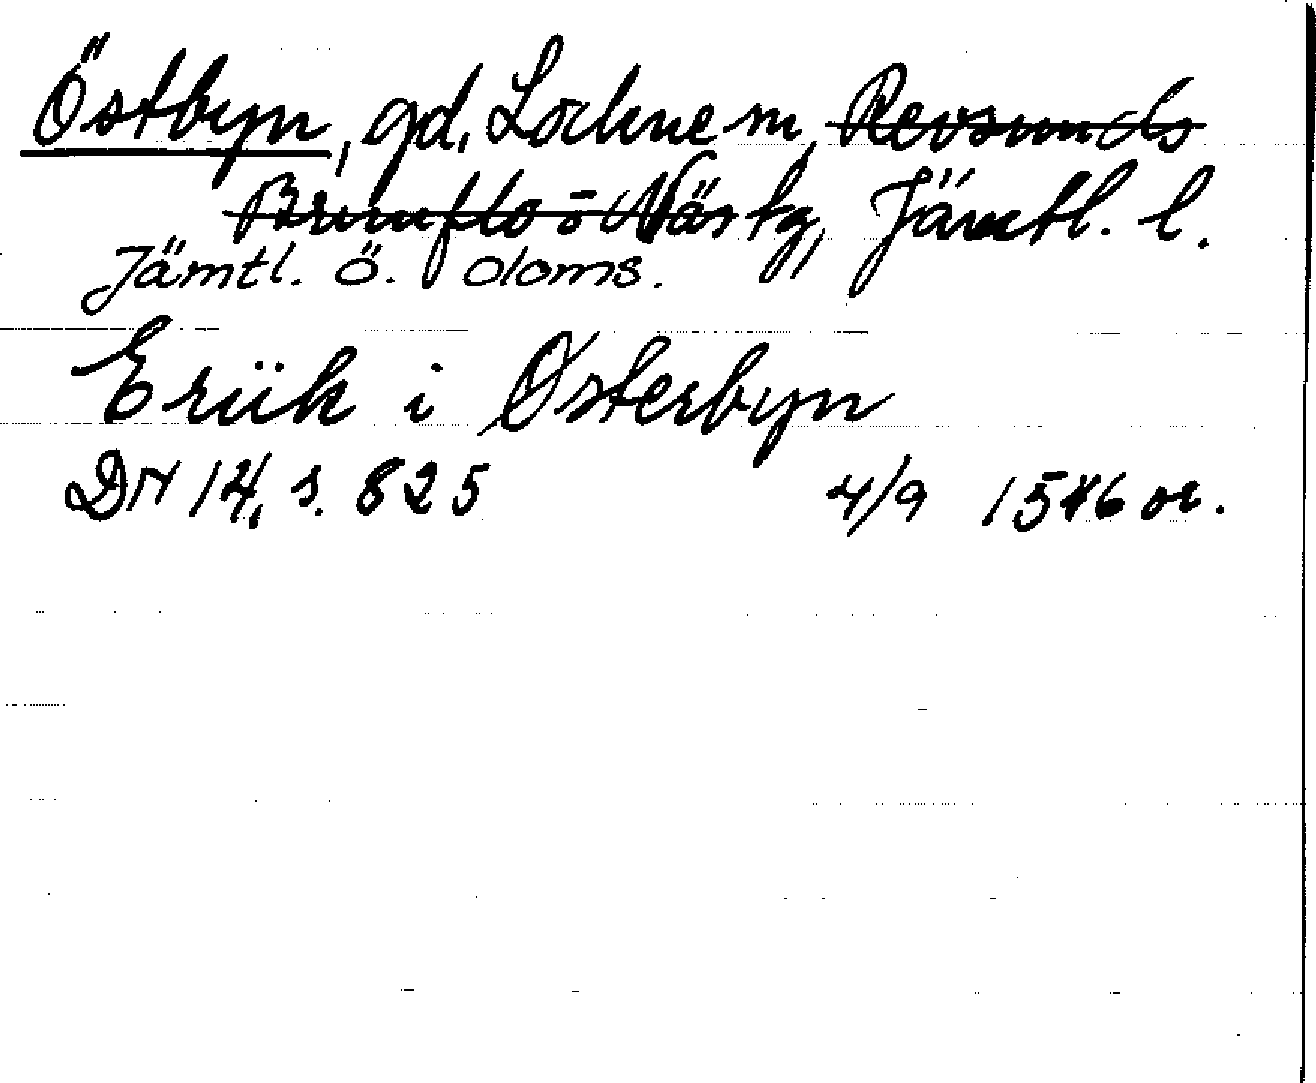 Östbyn, gd, Lockne sn, Revsunds
Brunflo o Näs tg, Jämtl. l.
Jämtl. Ö. doms.
Eriik i Østerbyn
DN 14, s. 825 4/9 1546 or.